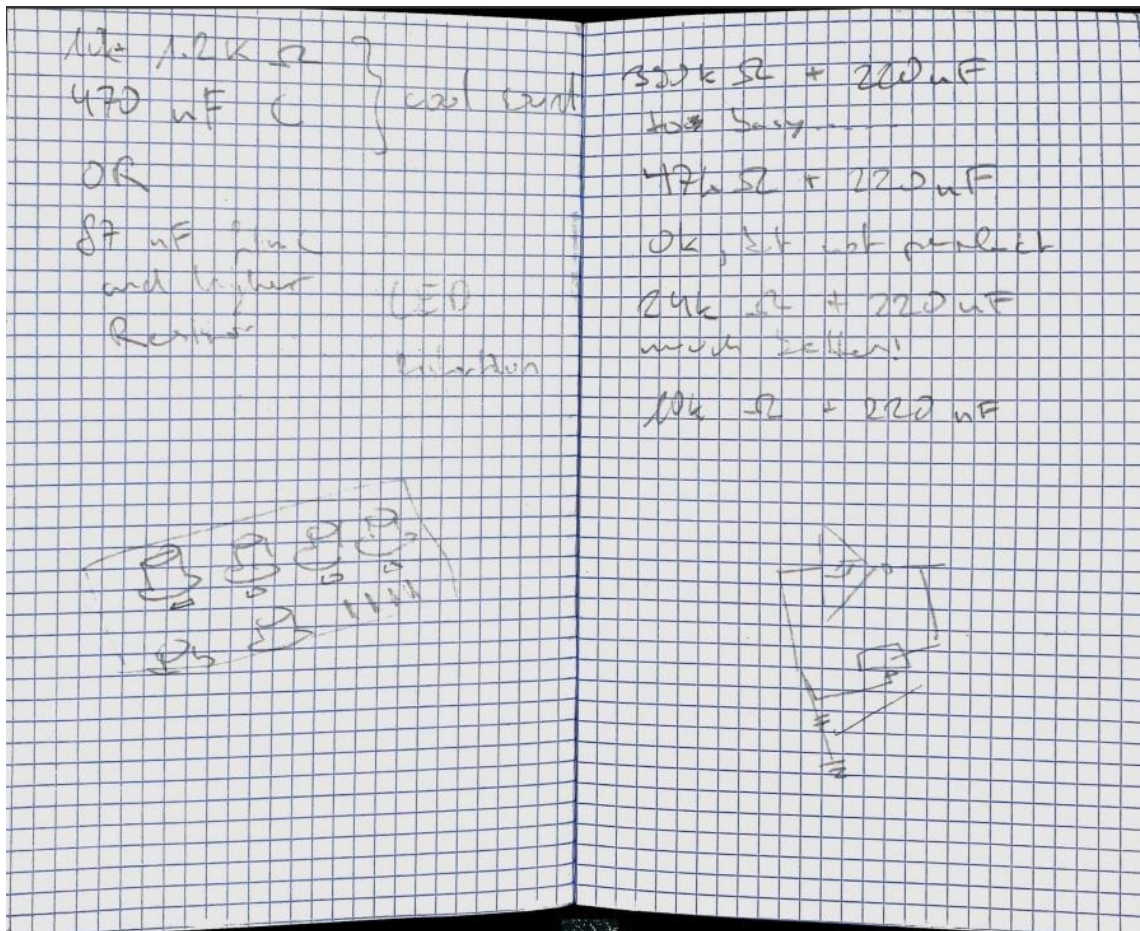 1.2K Ω
470 nF C } cool sound
OR
87 nF
and higher
Resistor
LED
390k Ω + 220nF
too bassy.....
47k Ω + 220nF
Ok, but not
24k Ω + 220nF
much better!
10k Ω + 220 nF